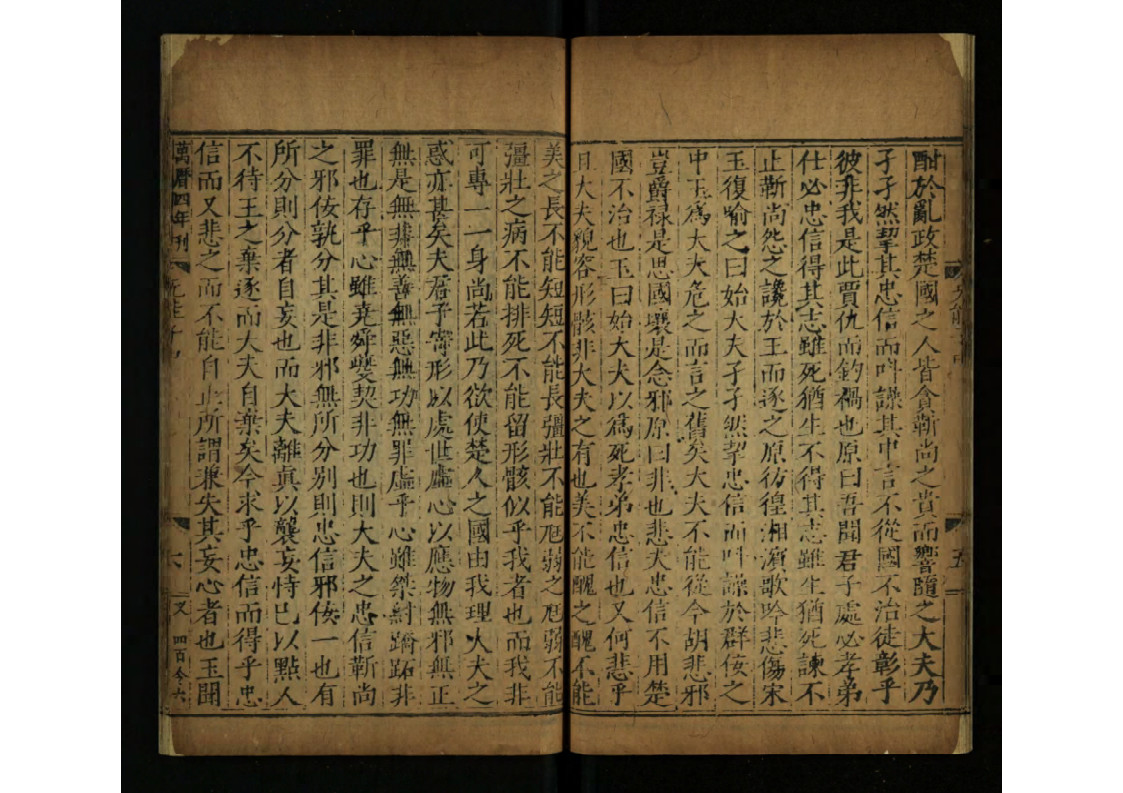 酣於亂政楚國之人皆貪靳尚之貴而響隨之大夫乃
孑孑然挈其忠信而叫譟其中言不從國不治徒彰乎
彼非我是此賈仇而釣禍也原曰吾聞君子處必孝弟
仕必忠信得其志雖死猶生不得其志雖生猶死諫不
止靳尚怨之讒於王而逐之原彷徨湘濱歌吟悲傷宋
玉復喻之曰始大夫孑孑然挈忠信而叫譟於群佞之
中玉爲大夫危之而言之舊矣大夫不能從今胡悲邪
豈爵祿是思國壤是念邪原曰非也悲夫忠信不用楚
國不治也玉曰始大夫以爲死孝弟忠信也又何悲乎
且大夫貌容形骸非大夫之有也美不能醜之醜不能
五
美之長不能短短不能長彊壯不能尫弱之尫弱不能
彊壯之病不能排死不能留形骸似乎我者也而我非
可專一一身尚若此乃欲使楚人之國由我理大夫之
惑亦甚矣夫君子寄形以處世虛心以應物無邪無正
無是無非無善無惡無功無罪虛乎心雖桀紂蹻跖非
罪也存乎心雖堯舜夔契非功也則大夫之忠信靳尚
之邪佞孰分其是非邪無所分別則忠信邪佞一也有
所分則分者自妄也而大夫離真以襲妄恃己以黜人
不待王之棄逐而大夫自棄矣今求乎忠信而得乎忠
信而又悲之而不能自止所謂兼失其妄心者也玉聞
萬曆四年刊 六 又 四百令六